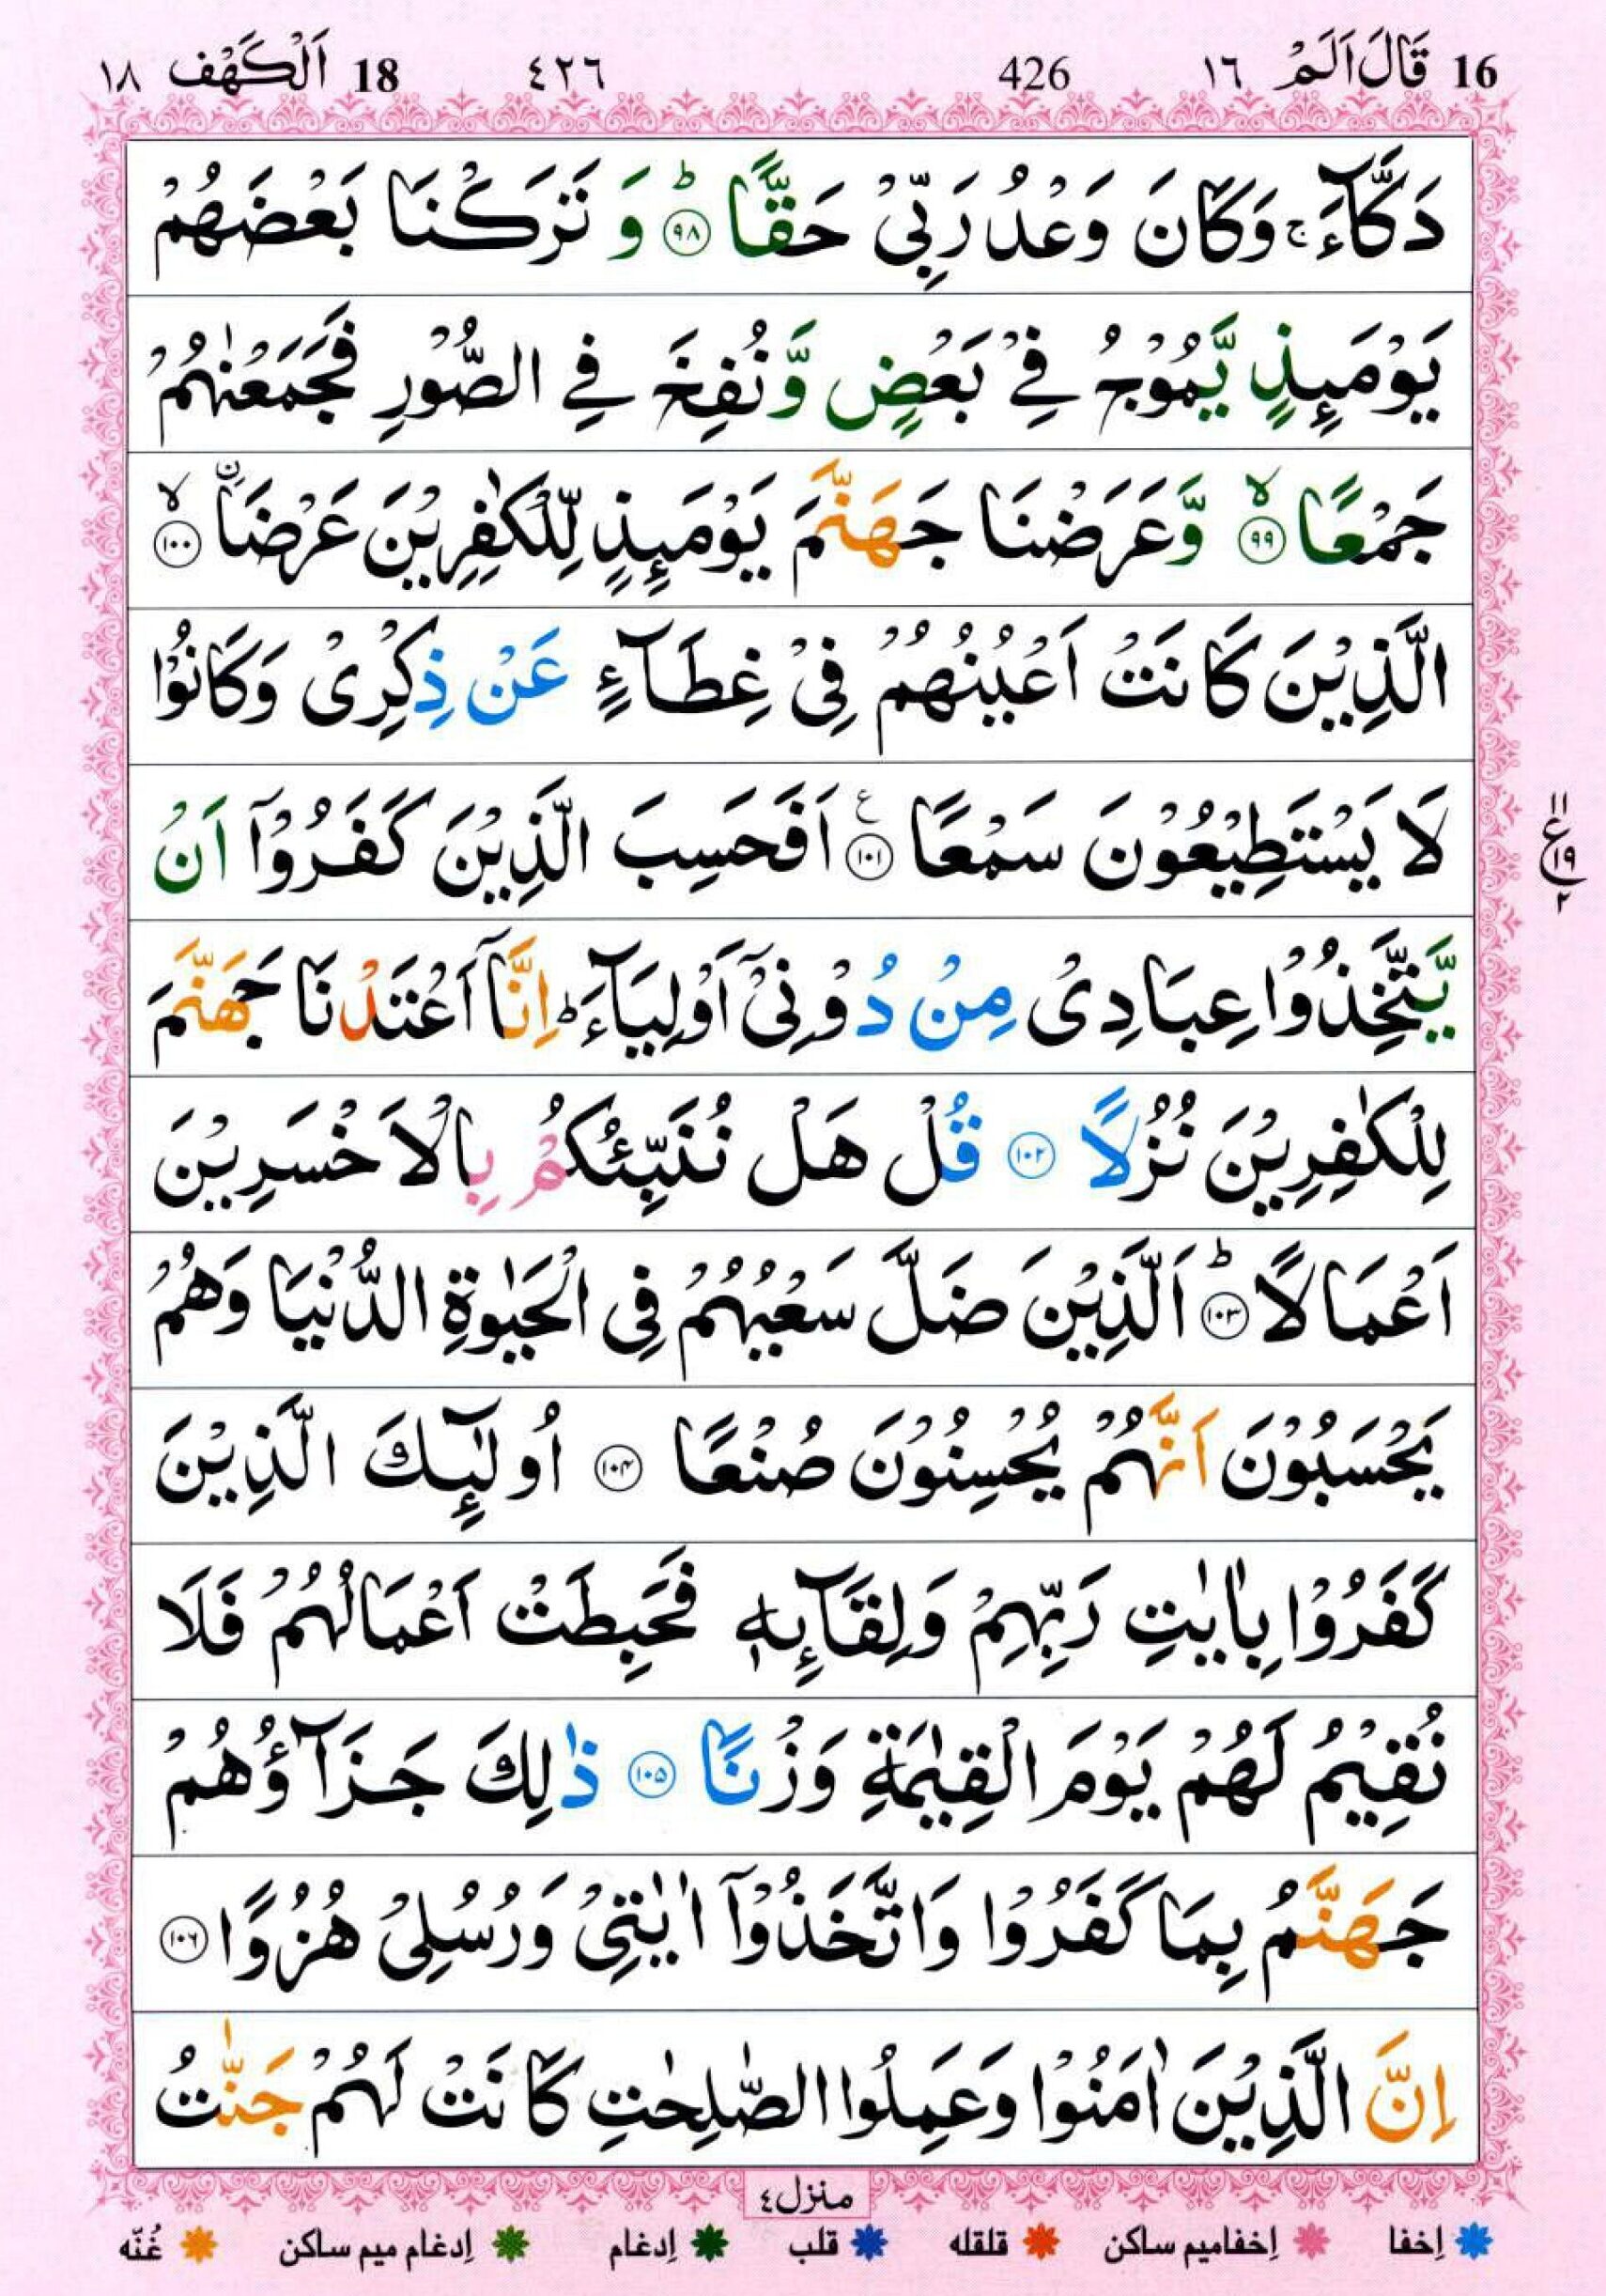 16 قَالَ اَلَمْ ١٦ 426 ٤٢٦ 18 اَلْكَهْف ١٨
دَكَّآءَ ۚ وَكَانَ وَعْدُ رَبِّیْ حَقًّا ؕ ﴿۹۸﴾ وَ تَرَكْنَا بَعْضَهُمْ
یَوْمَىِٕذٍ یَّمُوْجُ فِیْ بَعْضٍ وَّنُفِخَ فِی الصُّوْرِ فَجَمَعْنٰهُمْ
جَمْعًا ۙ ﴿۹۹﴾ وَّعَرَضْنَا جَهَنَّمَ یَوْمَىِٕذٍ لِّلْكٰفِرِیْنَ عَرْضَا ۙ ﴿۱۰۰﴾
الَّذِیْنَ كَانَتْ اَعْیُنُهُمْ فِیْ غِطَآءٍ عَنْ ذِكْرِیْ وَكَانُوْا
لَا یَسْتَطِیْعُوْنَ سَمْعًا ﴿۱۰۱﴾ ع اَفَحَسِبَ الَّذِیْنَ كَفَرُوْۤا اَنْ
١١ ع ١٩ ٢
یَّتَّخِذُوْا عِبَادِیْ مِنْ دُوْنِیْۤ اَوْلِیَآءَ ؕ اِنَّاۤ اَعْتَدْنَا جَهَنَّمَ
لِلْكٰفِرِیْنَ نُزُلًا ﴿۱۰۲﴾ قُلْ هَلْ نُنَبِّئُكُمْ بِالْاَخْسَرِیْنَ
اَعْمَالًا ؕ ﴿۱۰۳﴾ اَلَّذِیْنَ ضَلَّ سَعْیُهُمْ فِی الْحَیٰوةِ الدُّنْیَا وَهُمْ
یَحْسَبُوْنَ اَنَّهُمْ یُحْسِنُوْنَ صُنْعًا ﴿۱۰۴﴾ اُولٰٓىِٕكَ الَّذِیْنَ
كَفَرُوْا بِاٰیٰتِ رَبِّهِمْ وَلِقَآىِٕهٖ فَحَبِطَتْ اَعْمَالُهُمْ فَلَا
نُقِیْمُ لَهُمْ یَوْمَ الْقِیٰمَةِ وَزْنًا ﴿۱۰۵﴾ ذٰلِكَ جَزَآؤُهُمْ
جَهَنَّمُ بِمَا كَفَرُوْا وَاتَّخَذُوْۤا اٰیٰتِیْ وَرُسُلِیْ هُزُوًا ﴿۱۰۶﴾
اِنَّ الَّذِیْنَ اٰمَنُوْا وَعَمِلُوا الصّٰلِحٰتِ كَانَتْ لَهُمْ جَنّٰتُ
منزل ٤
إخفا إخفامیم ساکن قلقله قلب إدغام إدغام میم ساکن غُنّه